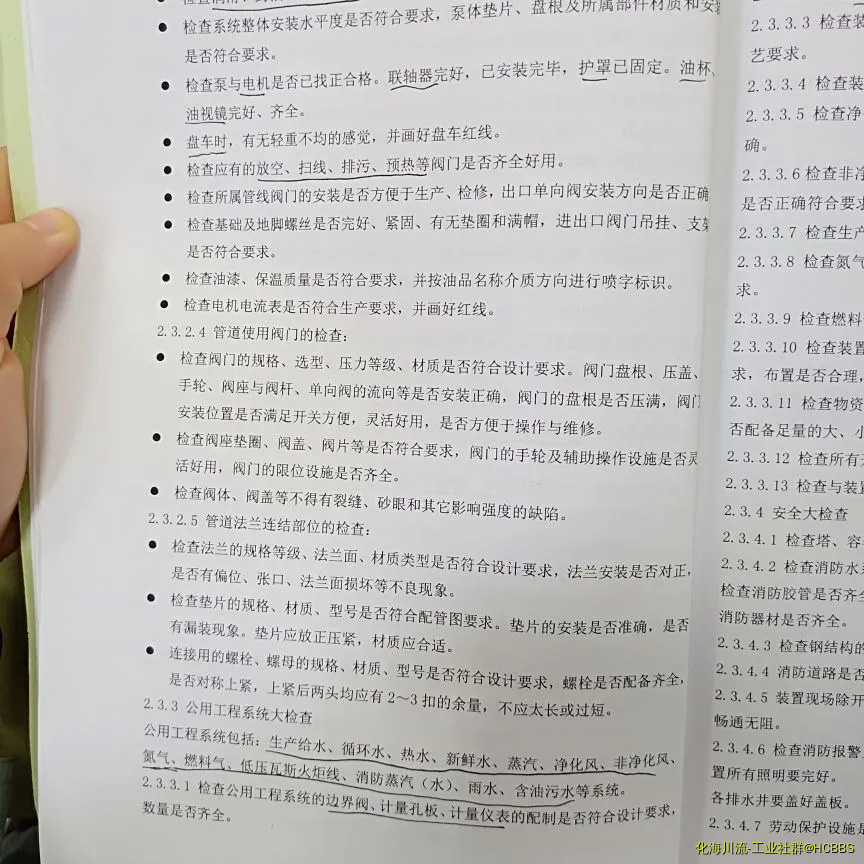 ● 检查系统整体安装水平度是否符合要求，泵体垫片、盘根及所属部件材质和安装
是否符合要求。
● 检查泵与电机是否已找正合格。联轴器完好，已安装完毕，护罩已固定。油杯、
油视镜完好、齐全。
● 盘车时，有无轻重不均的感觉，并画好盘车红线。
● 检查应有的放空、扫线、排污、预热等阀门是否齐全好用。
● 检查所属管线阀门的安装是否方便于生产、检修，出口单向阀安装方向是否正确
● 检查基础及地脚螺丝是否完好、紧固、有无垫圈和满帽，进出口阀门吊挂、支架
是否符合要求。
● 检查油漆、保温质量是否符合要求，并按油品名称介质方向进行喷字标识。
● 检查电机电流表是否符合生产要求，并画好红线。
2.3.2.4 管道使用阀门的检查：
● 检查阀门的规格、选型、压力等级、材质是否符合设计要求。阀门盘根、压盖、
手轮、阀座与阀杆、单向阀的流向等是否安装正确，阀门的盘根是否压满，阀门
安装位置是否满足开关方便，灵活好用，是否方便于操作与维修。
● 检查阀座垫圈、阀盖、阀片等是否符合要求，阀门的手轮及辅助操作设施是否灵
活好用，阀门的限位设施是否齐全。
● 检查阀体、阀盖等不得有裂缝、砂眼和其它影响强度的缺陷。
2.3.2.5 管道法兰连结部位的检查：
● 检查法兰的规格等级、法兰面、材质类型是否符合设计要求，法兰安装是否对正，
是否有偏位、张口、法兰面损坏等不良现象。
● 检查垫片的规格、材质、型号是否符合配管图要求。垫片的安装是否准确，是否
有漏装现象。垫片应放正压紧，材质应合适。
● 连接用的螺栓、螺母的规格、材质、型号是否符合设计要求，螺栓是否配备齐全，
是否对称上紧，上紧后两头均应有 2～3 扣的余量，不应太长或过短。
2.3.3 公用工程系统大检查
公用工程系统包括：生产给水、循环水、热水、新鲜水、蒸汽、净化风、非净化风、
氮气、燃料气、低压瓦斯火炬线、消防蒸汽（水）、雨水、含油污水等系统。
2.3.3.1 检查公用工程系统的边界阀、计量孔板、计量仪表的配制是否符合设计要求，
数量是否齐全。
2.3.3.3 检查装
艺要求。
2.3.3.4 检查装
2.3.3.5 检查净
确。
2.3.3.6 检查非净
是否正确符合要求
2.3.3.7 检查生产
2.3.3.8 检查氮气
求。
2.3.3.9 检查燃料
2.3.3.10 检查装置
求，布置是否合理，
2.3.3.11 检查物资
否配备足量的大、小
2.3.3.12 检查所有
2.3.3.13 检查与装置
2.3.4 安全大检查
2.3.4.1 检查塔、容
2.3.4.2 检查消防水
检查消防胶管是否齐全
消防器材是否齐全。
2.3.4.3 检查钢结构的
2.3.4.4 消防道路是否
2.3.4.5 装置现场除开
畅通无阻。
2.3.4.6 检查消防报警
置所有照明要完好。
各排水井要盖好盖板。
2.3.4.7 劳动保护设施是
化海川流-工业社群@HCBBS